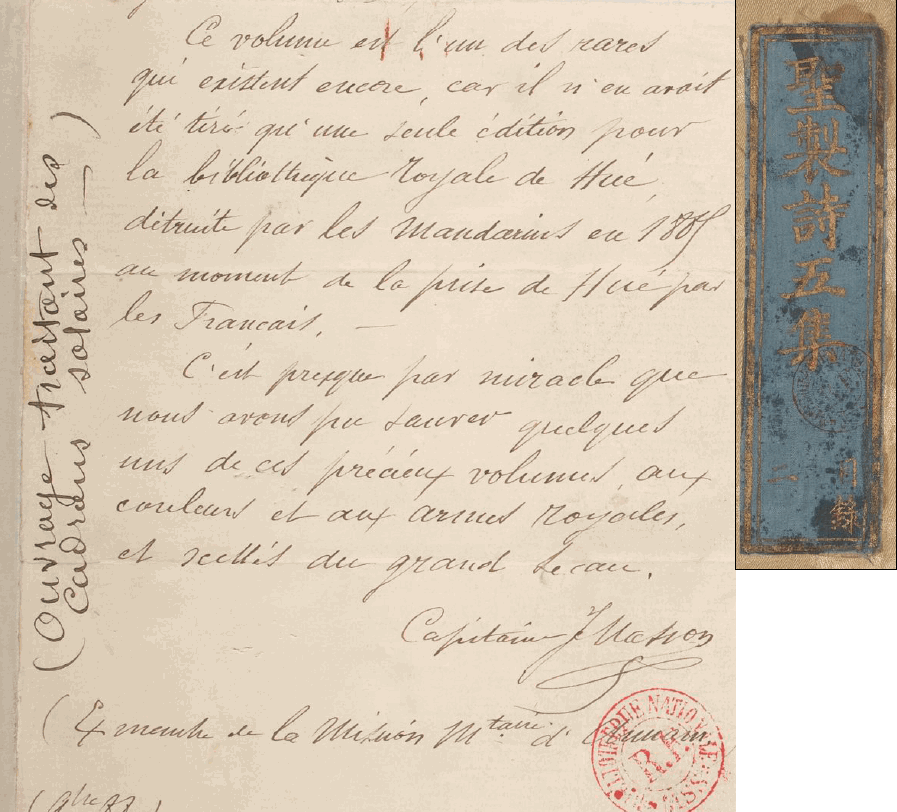 Ce volume est l'un des rares
qui existent encore, car il n'en avait
été tiré qu'une seule édition pour
la bibliothèque Royale de Hué
détruite par les Mandarins en 1885
au moment de la prise de Hué par
les Français. —
C'est presque par miracle que
nous avons pu sauver quelques
uns de ces précieux volumes, aux
couleurs et aux armes royales,
et scellés du grand Sceau.
Capitaine J Masson
(Ex membre de la Mission Mtaire d'Annam
(Ouvrage traitant des
Cadrans solaires —)
BIBLIOTHEQUE NATIONALE
R.F.
MSS
聖製詩五集
二
目錄